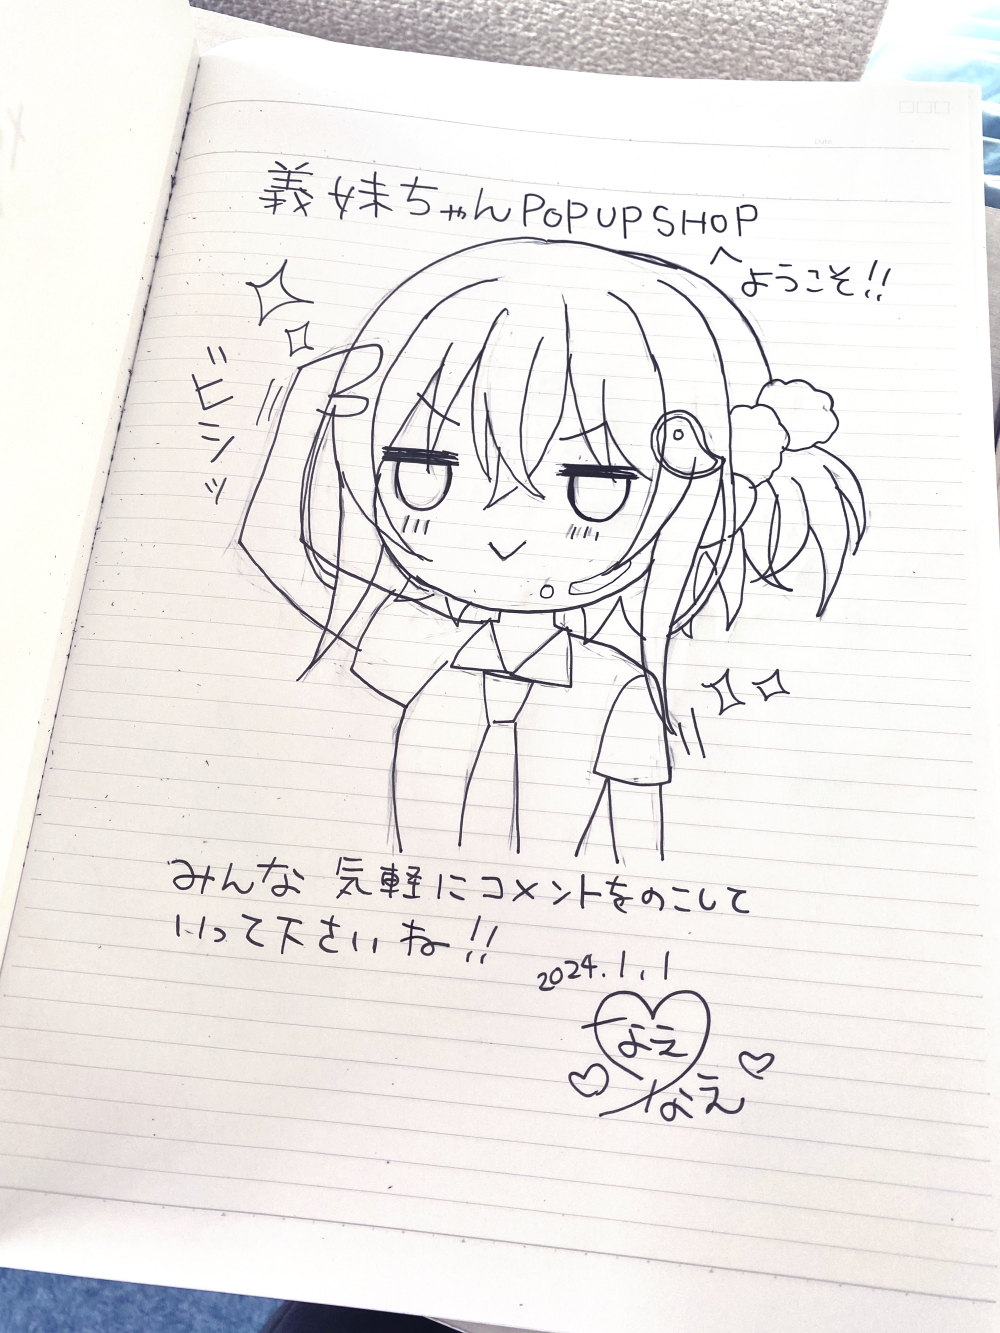 義妹ちゃんPOPUPSHOP
へようこそ!!
ビシッ
みんな 気軽にコメントをのこして
いって下さいね!!
2024.1.1
なえなえ